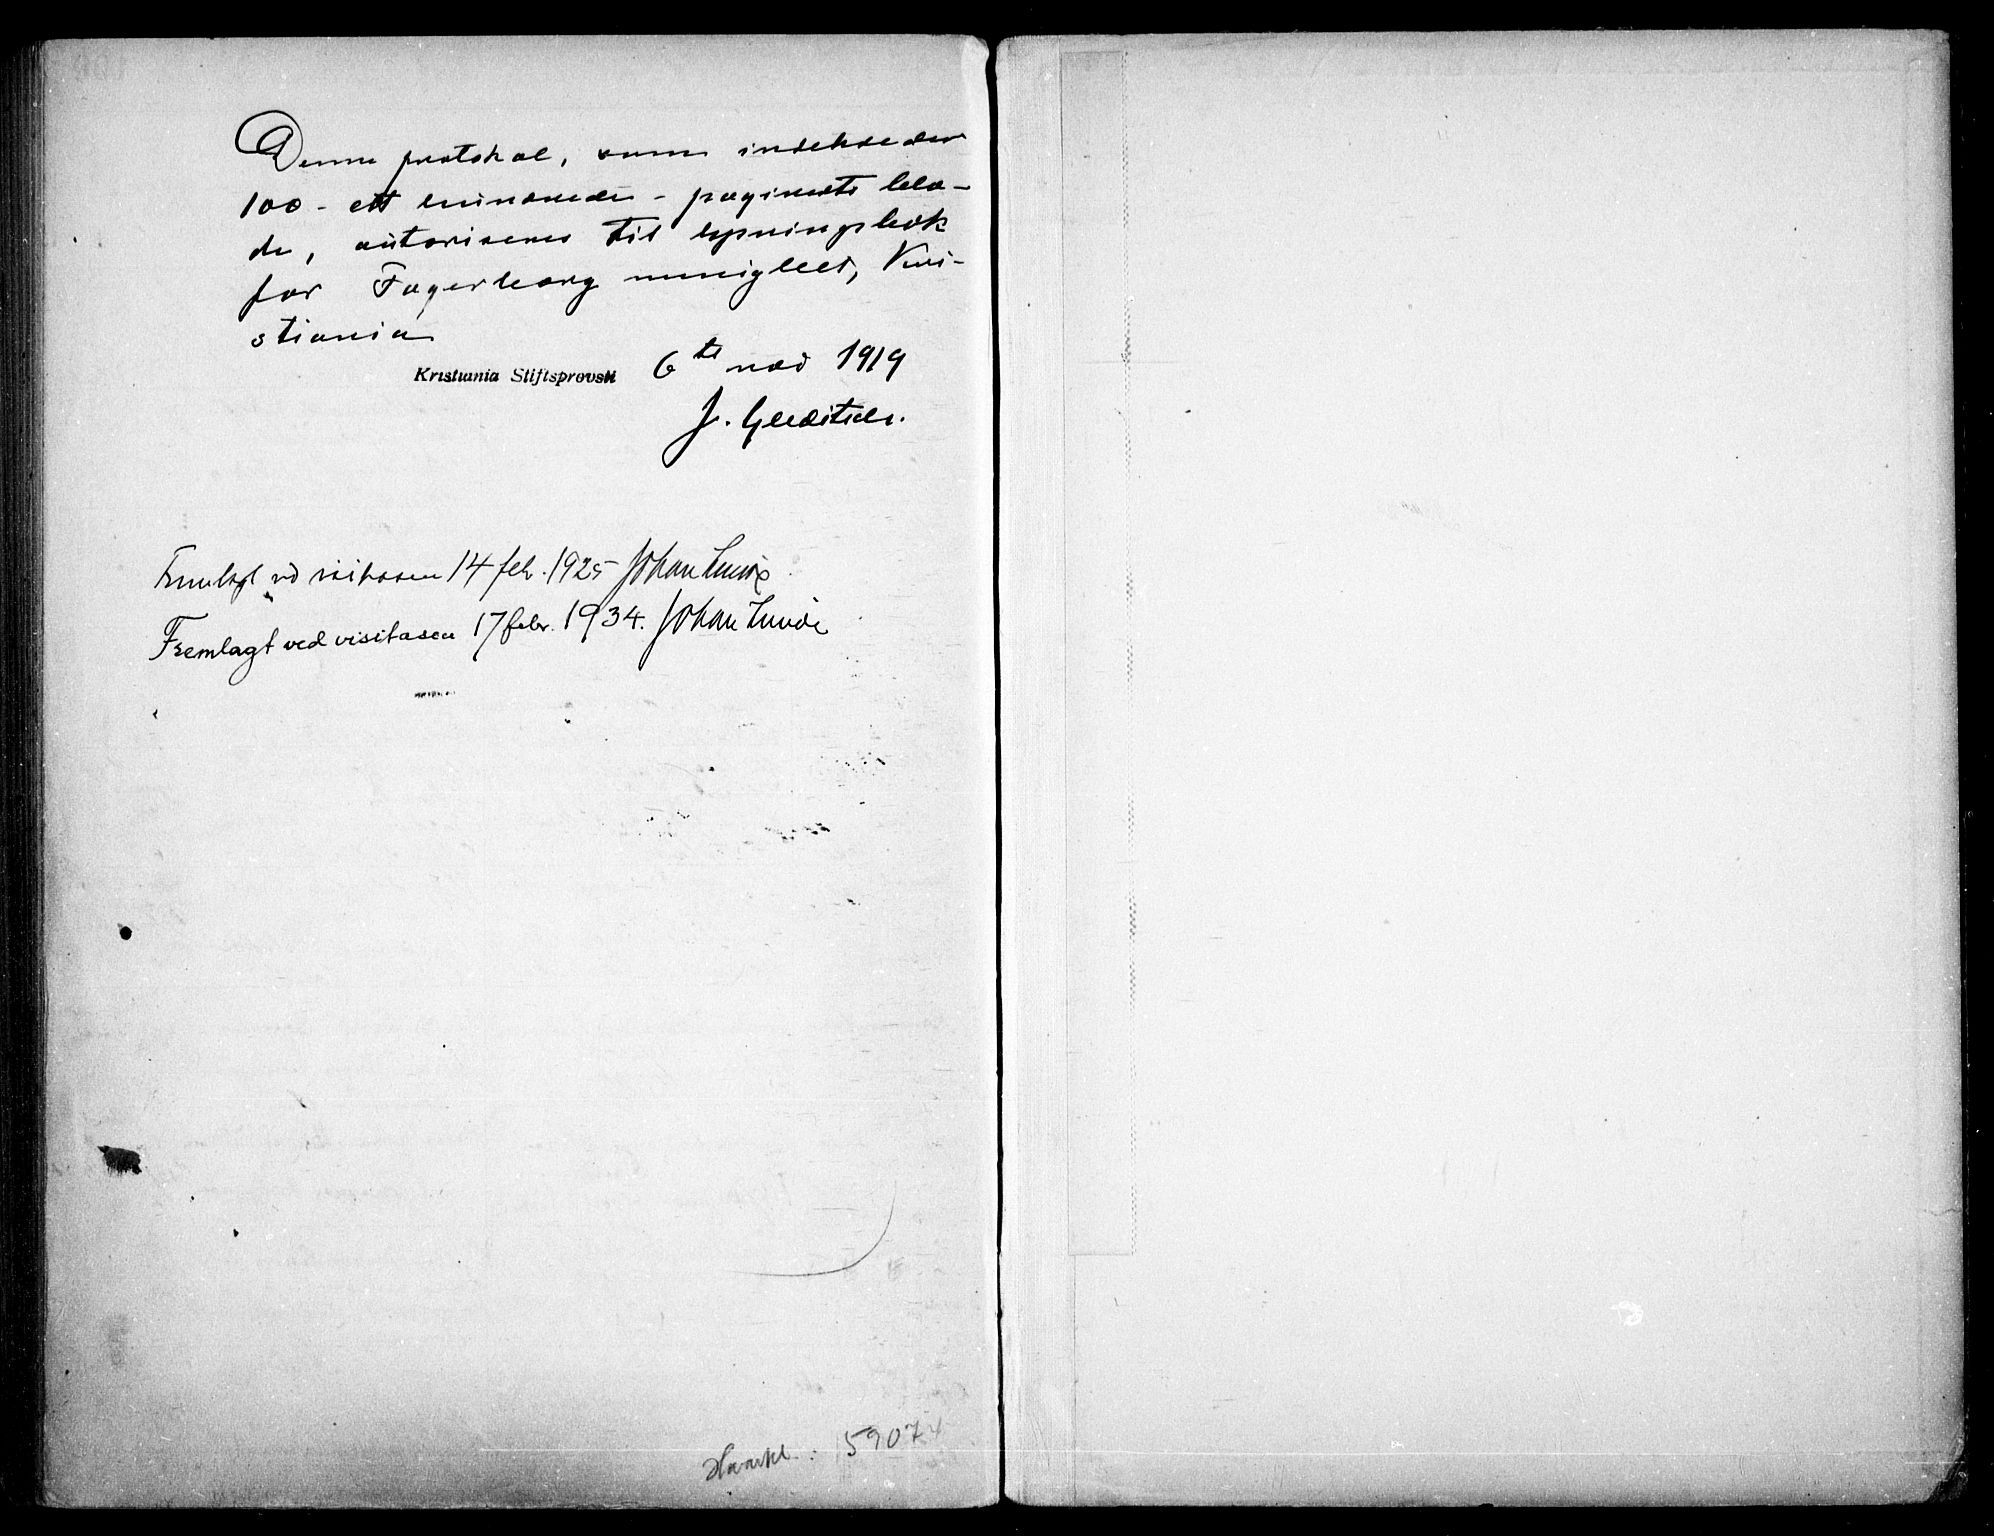 Denne protokol, som indeholder
100 - ett hundrede - paginerte bla-
de, autoriseres til lysningsbok
for Fagerborg menighet, Kri-
stiania
Kristiania Stiftsprovsti 6te nov 1919
J. Gleditsch.
Fremlagt ved visitasen 14 febr. 1925 Johan Lunde
Fremlagt ved visitasen 17 febr. 1934. Johan Lunde